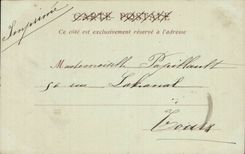 Imprimé
CARTE POSTALE
Ce côté est exclusivement réservé à l'adresse
Mademoiselle Papillault
50 rue Lakanal
Tours